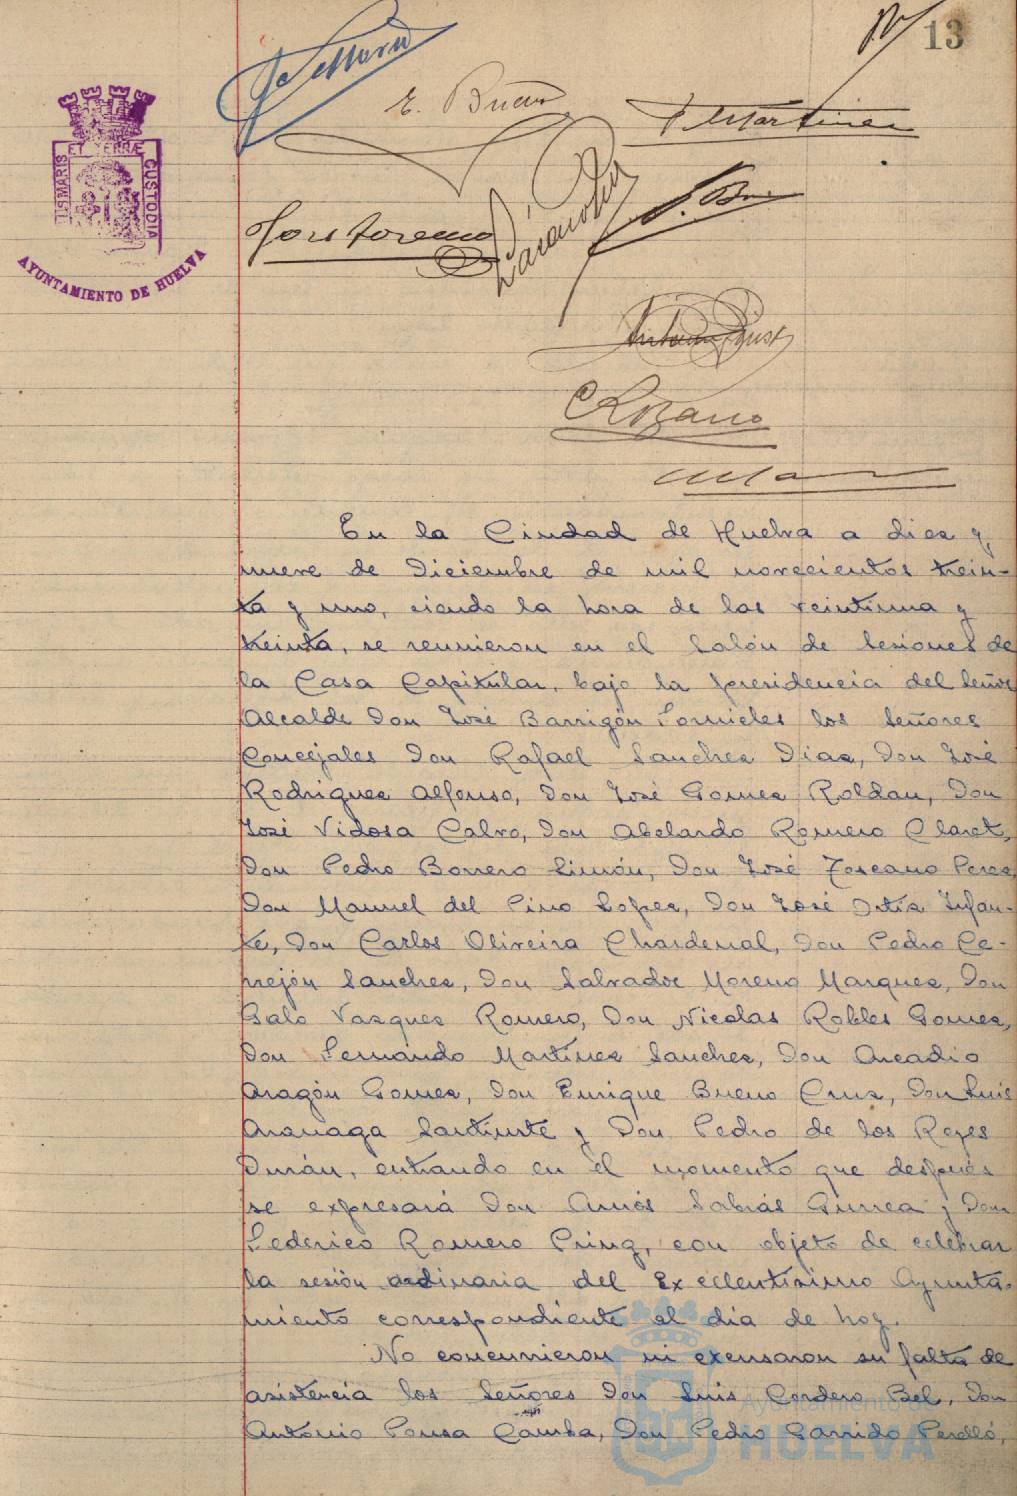 13
E. Bueno
F. Martinez
ISMARIS ET TERRÆ CUSTODIA
AYUNTAMIENTO DE HUELVA
En la Ciudad de Huelva a diez y
nueve de Diciembre de mil novecientos trein-
ta y uno, siendo la hora de las veintiuna y
treinta, se reunieron en el Salón de Sesiones de
la Casa Capitular, bajo la presidencia del Señor
Alcalde Don José Barrigón Fornieles los Señores
Concejales Don Rafael Sanchez Diaz, Don José
Rodriguez Alfonso, Don José Gomez Roldan, Don
José Vidosa Calvo, Don Abelardo Romero Claret,
Don Pedro Borrero Limón, Don José Toscano Perez,
Don Manuel del Pino Lopez, Don José Ortiz Infan-
te, Don Carlos Oliveira Chardenal, Don Pedro Ce-
rrejón Sanchez, Don Salvador Moreno Marquez, Don
Galo Vazquez Romero, Don Nicolas Robles Gomez,
Don Fernando Martinez Sanchez, Don Arcadio
Aragón Gomez, Don Enrique Bueno Cruz, Don Luis
Aranaga Santiuste y Don Pedro de los Reyes
Durán, entrando en el momento que después
se expresará Don Amós Sabrás Gurrea y Don
Federico Romero Prinz, con objeto de celebrar
la sesión ordinaria del Excelentisimo Ayunta-
miento correspondiente al dia de hoy.
No concurrieron ni excusaron su falta de
asistencia los Señores Don Luis Cordero Bel, Don
Antonio Pousa Camba, Don Pedro Garrido Perelló,
Ayuntamiento de
HUELVA